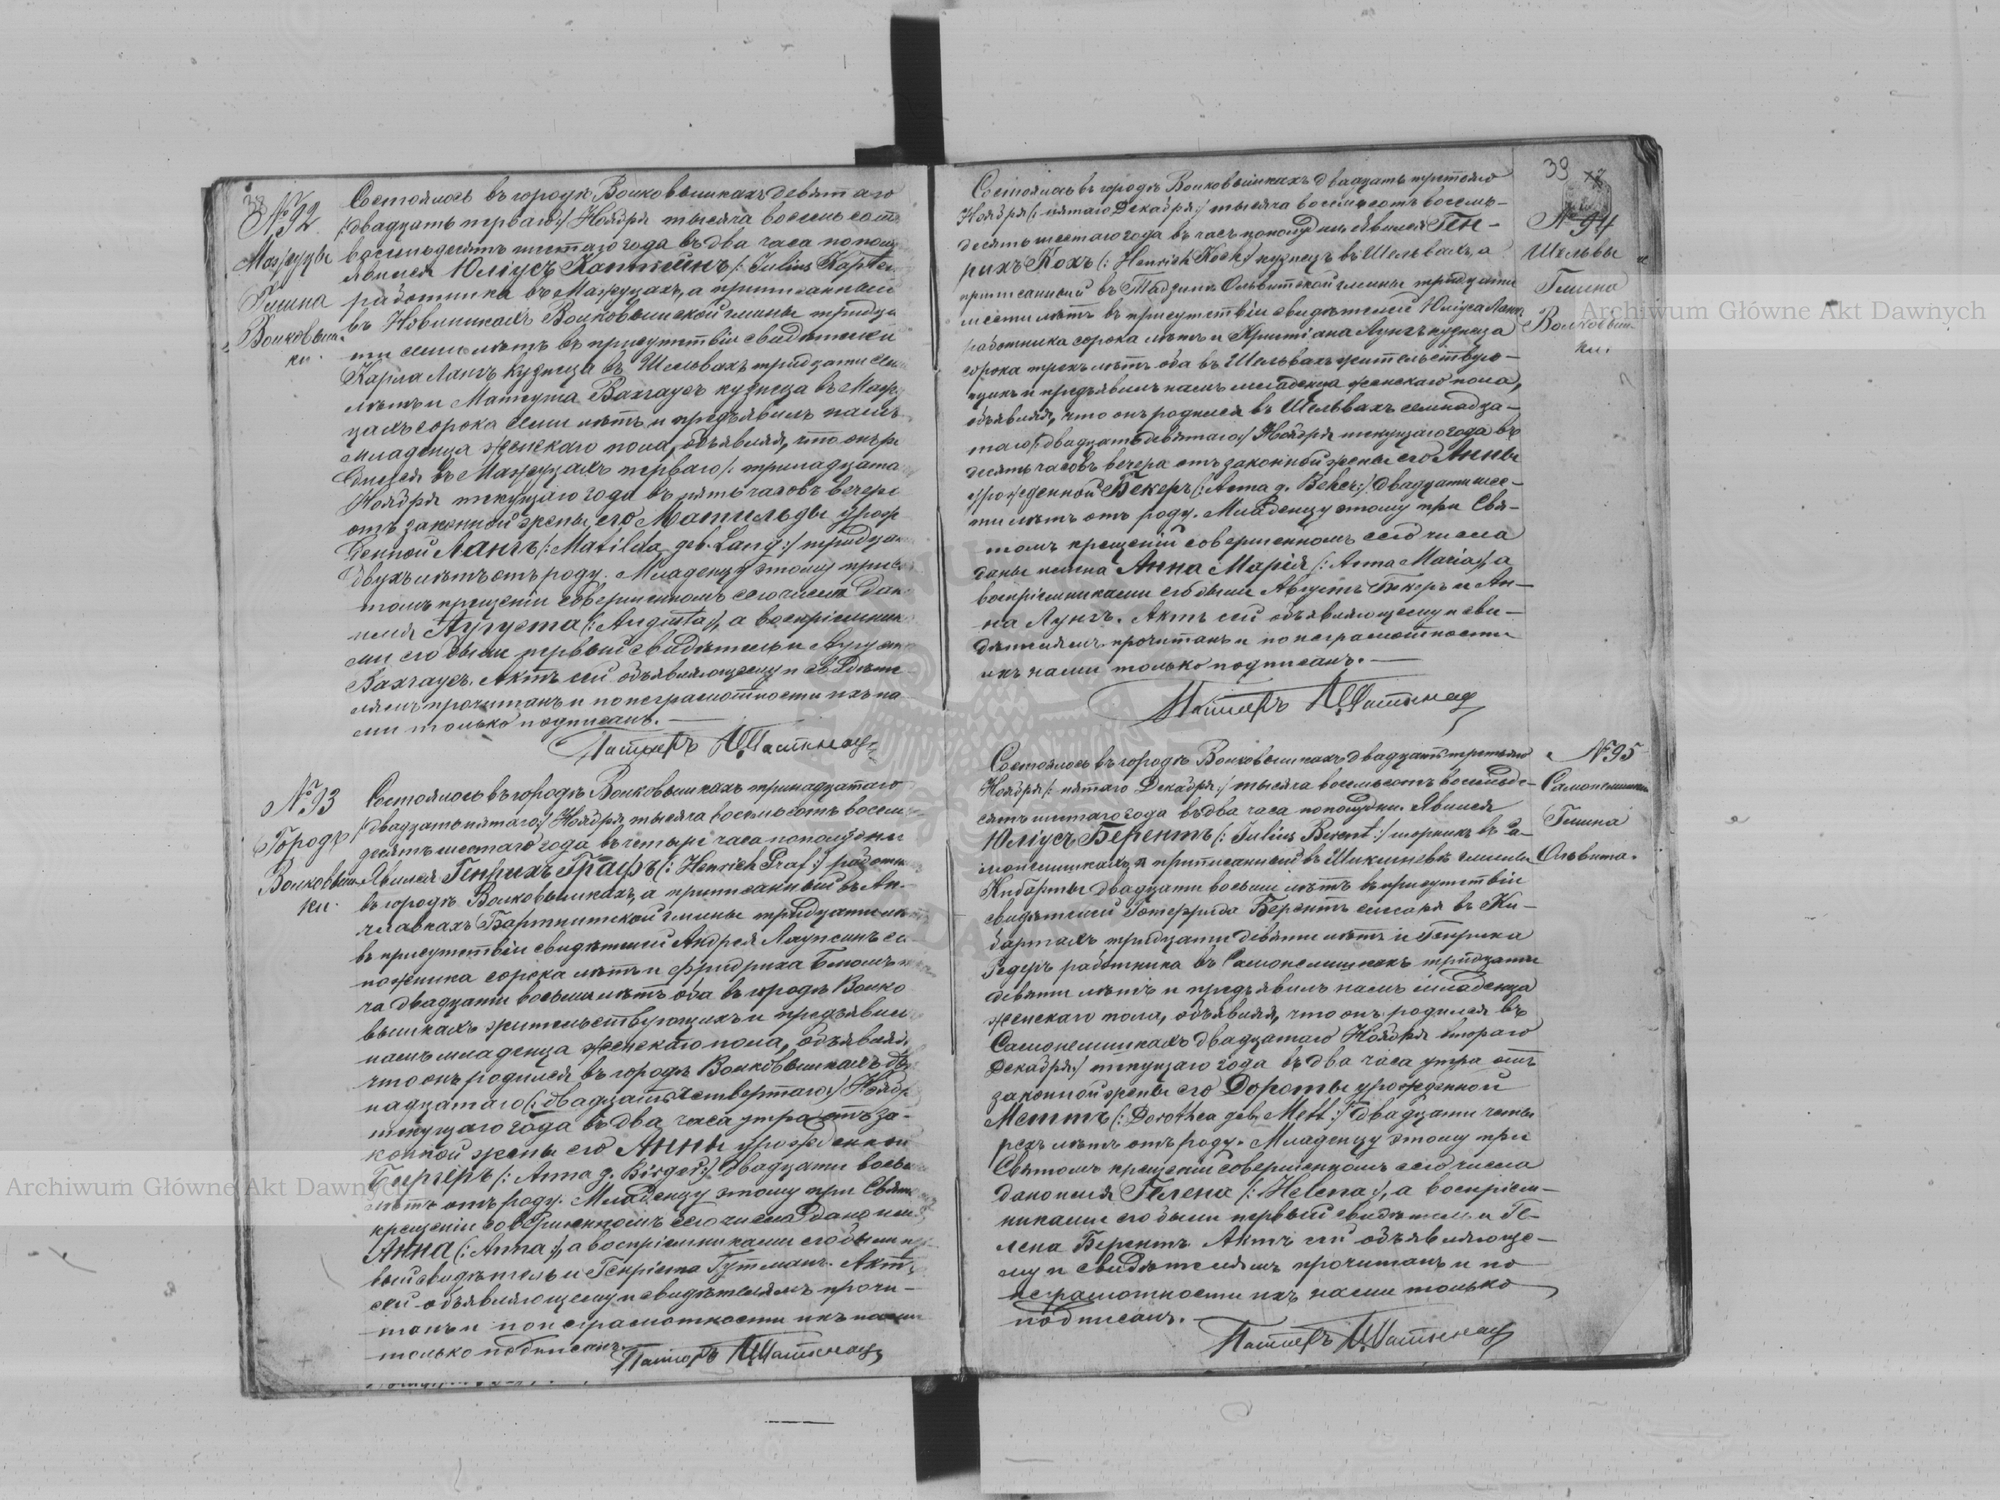 38
№ 92
Мажуцы
Гмина
Волковыш-
ки.
Состоялось въ городѣ Волковышкахъ девятаго
/:двадцать перваго:/ Ноября тысяча восемь сотъ
восемьдесятъ шестаго года въ два часа пополу
явился Юліусъ Каптейнъ /: Julius Kaptein
работникъ въ Мажуцахъ, а приписанный
въ Новиникахъ Волковышской гмины тридца
ти семи лѣтъ въ присутствіи свидѣтелей
Карла Лангъ кузнеца въ Шельвахъ тридцати семи
лѣтъ и Матеуша Вахгаусъ кузнеца въ Мажу
цахъ сорока семи лѣтъ и предъявилъ намъ
младенца женскаго пола, объявляя, что онъ ро
дился въ Мажуцахъ перваго /: тринадцата
Ноября текущаго года въ пять часовъ вечера
отъ законной жены его Матильды урож
денной Лангъ /: Matilda geb. Lang :/ тридца
двухъ лѣтъ отъ роду. Младенцу этому при Свя
томъ крещеніи совершенномъ сего числа дано
имя Аугуста /: Augusta :/, а воспріемника
ми его были первый свидѣтель и Аугуста
Вахгаусъ. Актъ сей объявляющему и свидѣте
лямъ прочитанъ и по неграмотности ихъ на
ми только подписанъ.
Пасторъ
№ 93
Городъ
Волковыш-
ки.
Состоялось въ городѣ Волковышкахъ тринадцатаго
/:двадцать пятаго:/ Ноября тысяча восемьсотъ восемь
десятъ шестаго года въ четыре часа пополудни
Явился Генрихъ Графъ /: Henrich Graf :/ работн
въ городѣ Волковышкахъ, а приписанный въ Ан-
члавкахъ Бартнитской гмины тридцати лѣтъ
въ присутствіи свидѣтелей Андрея Лаупсинъ са
пожника сорока лѣтъ и Фридриха Блюмъ
ча двадцати восьми лѣтъ оба въ городѣ Волко
вышкахъ жительствующихъ и предъявилъ
намъ младенца женскаго пола, объявляя,
что онъ родился въ городѣ Волковышкахъ две
надцатаго /: двадцать четвертаго :/ Ноябр
текущаго года въ два часа утра отъ за-
конной жены его Анны урожденной
Биргеръ /: Anna g. Birger :/ двадцати восьми
лѣтъ отъ роду. Младенцу этому при Святомъ
крещеніи совершенномъ сего числа дано имя
Анна /: Anna :/, а воспріемниками его были пер
вый свидѣтель и Генріета Гутманъ. Актъ
сей объявляющему и свидѣтелямъ прочи-
танъ и по неграмотности ихъ нами
только подписанъ.
Пасторъ
39
№ 94
Шельвы
Гмина
Волковыш-
ки.
Состоялось въ городѣ Волковышкахъ двадцать третьяго
Ноября /: пятаго Декабря :/ тысяча восемьсотъ восемь-
десятъ шестаго года въ часъ пополудни. Явился Ген-
рихъ Кохъ /: Henrich Koch :/ кузнецъ въ Шельвахъ, а
приписанный въ Тадзинѣ Ольвитской гмины тридцати
шести лѣтъ въ присутствіи свидѣтелей Юліуса Лангъ
работника сорока лѣтъ и Христіана Лунгъ кузнеца
сорока трехъ лѣтъ оба въ Шельвахъ жительствую-
щихъ и предъявилъ намъ младенца женскаго пола,
объявляя, что онъ родился въ Шельвахъ семнадца-
таго /: двадцать девятаго :/ Ноября текущаго года въ
десять часовъ вечера отъ законной жены его Анны
урожденной Бекеръ /: Anna g. Beker :/ двадцати шес-
ти лѣтъ отъ роду. Младенцу этому при Свя-
томъ крещеніи совершенномъ сего числа
даны имена Анна Марія /: Anna Maria :/, а
воспріемниками его были Августъ Бекеръ и Ан-
на Лунгъ. Актъ сей объявляющему и сви-
дѣтелямъ прочитанъ и по неграмотности
ихъ нами только подписанъ.
Пасторъ
№ 95
Гмина
Ольвита.
Состоялось въ городѣ Волковышкахъ двадцать третьяго
Ноября /: пятаго Декабря :/ тысяча восемьсотъ восемьде-
сятъ шестаго года въ два часа пополудни. Явился
Юліусъ Берентъ /: Julius Berent :/ шорникъ въ Са-
приписанный въ гмины
Кибарты двадцати восьми лѣтъ въ присутствіи
свидѣтелей Готфрида Берентъ слесаря въ Ки-
бартахъ тридцати девяти лѣтъ и Генриха
Редеръ работника въ тридцати
девяти лѣтъ и предъявилъ намъ младенца
женскаго пола, объявляя, что онъ родился въ
двадцатаго Ноября втораго
Декабря :/ текущаго года въ два часа утра отъ
законной жены его Дороты урожденной
Меттъ /: Dorothea geb. Mett :/ двадцати четы
рехъ лѣтъ отъ роду. Младенцу этому при
Святомъ крещеніи совершенномъ сего числа
дано имя Гелена /: Helena :/, а воспріем-
никами его были первый свидѣтель и Ге-
лена Берентъ. Актъ сей объявляюще-
му и свидѣтелямъ прочитанъ и по
неграмотности ихъ нами только
подписанъ.
Пасторъ
Archiwum Główne Akt Dawnych
Archiwum Główne Akt Dawnych